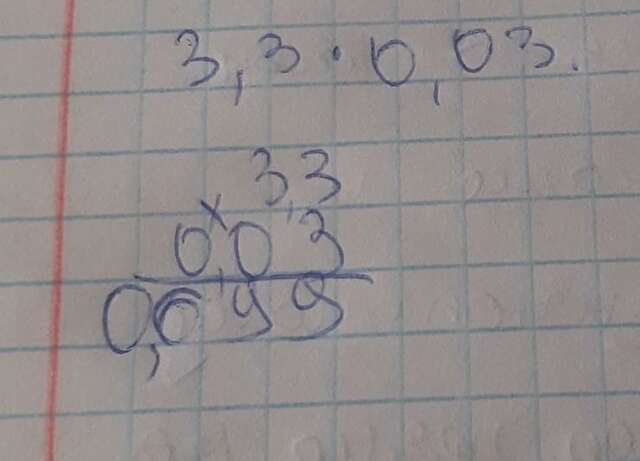 3,3 · 0,03.
3,3
×
0,03
0,099